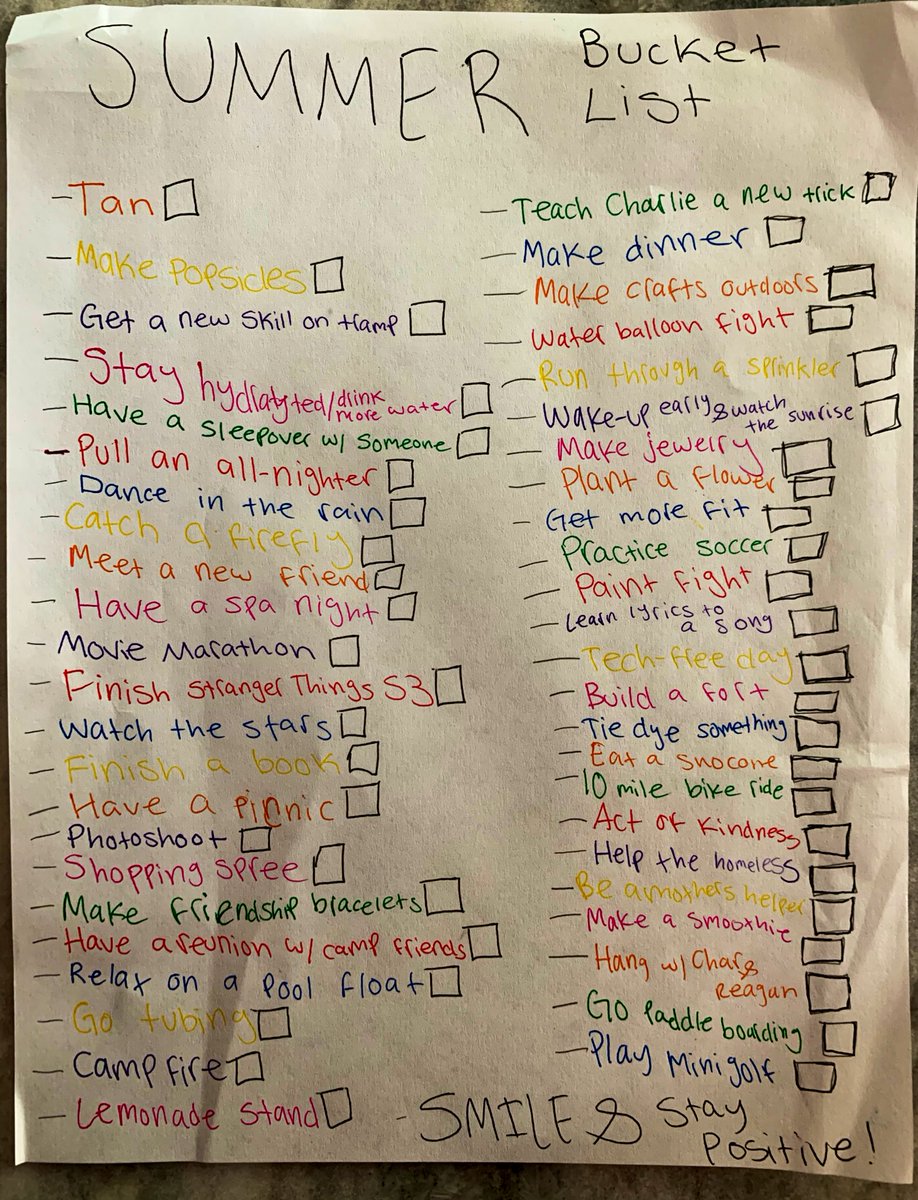 SUMMER Bucket List
- Tan
- Make Popsicles
- Get a new skill on tramp
- Stay hydrayted/drink more water
- Have a sleepover w/ someone
- Pull an all-nighter
- Dance in the rain
- Catch a firefly
- Meet a new friend
- Have a spa night
- Movie Marathon
- Finish Stranger Things S3
- Watch the stars
- Finish a book
- Have a picnic
- Photoshoot
- Shopping spree
- Make friendship bracelets
- Have a reunion w/ camp friends
- Relax on a pool float
- Go tubing
- Campfire
- Lemonade Stand
- Teach Charlie a new trick
- Make dinner
- Make crafts outdoors
- Water balloon fight
- Run through a sprinkler
- Wake-up early & watch the sunrise
- Make jewelry
- Plant a flower
- Get more fit
- Practice soccer
- Paint fight
- Learn lyrics to a song
- Tech-free day
- Build a fort
- Tie dye something
- Eat a snocone
- 10 mile bike ride
- Act of kindness
- Help the homeless
- Be a mothers helper
- Make a smoothie
- Hang w/ Char & Reagan
- Go Paddle boarding
- Play Minigolf
- SMILE & Stay Positive!